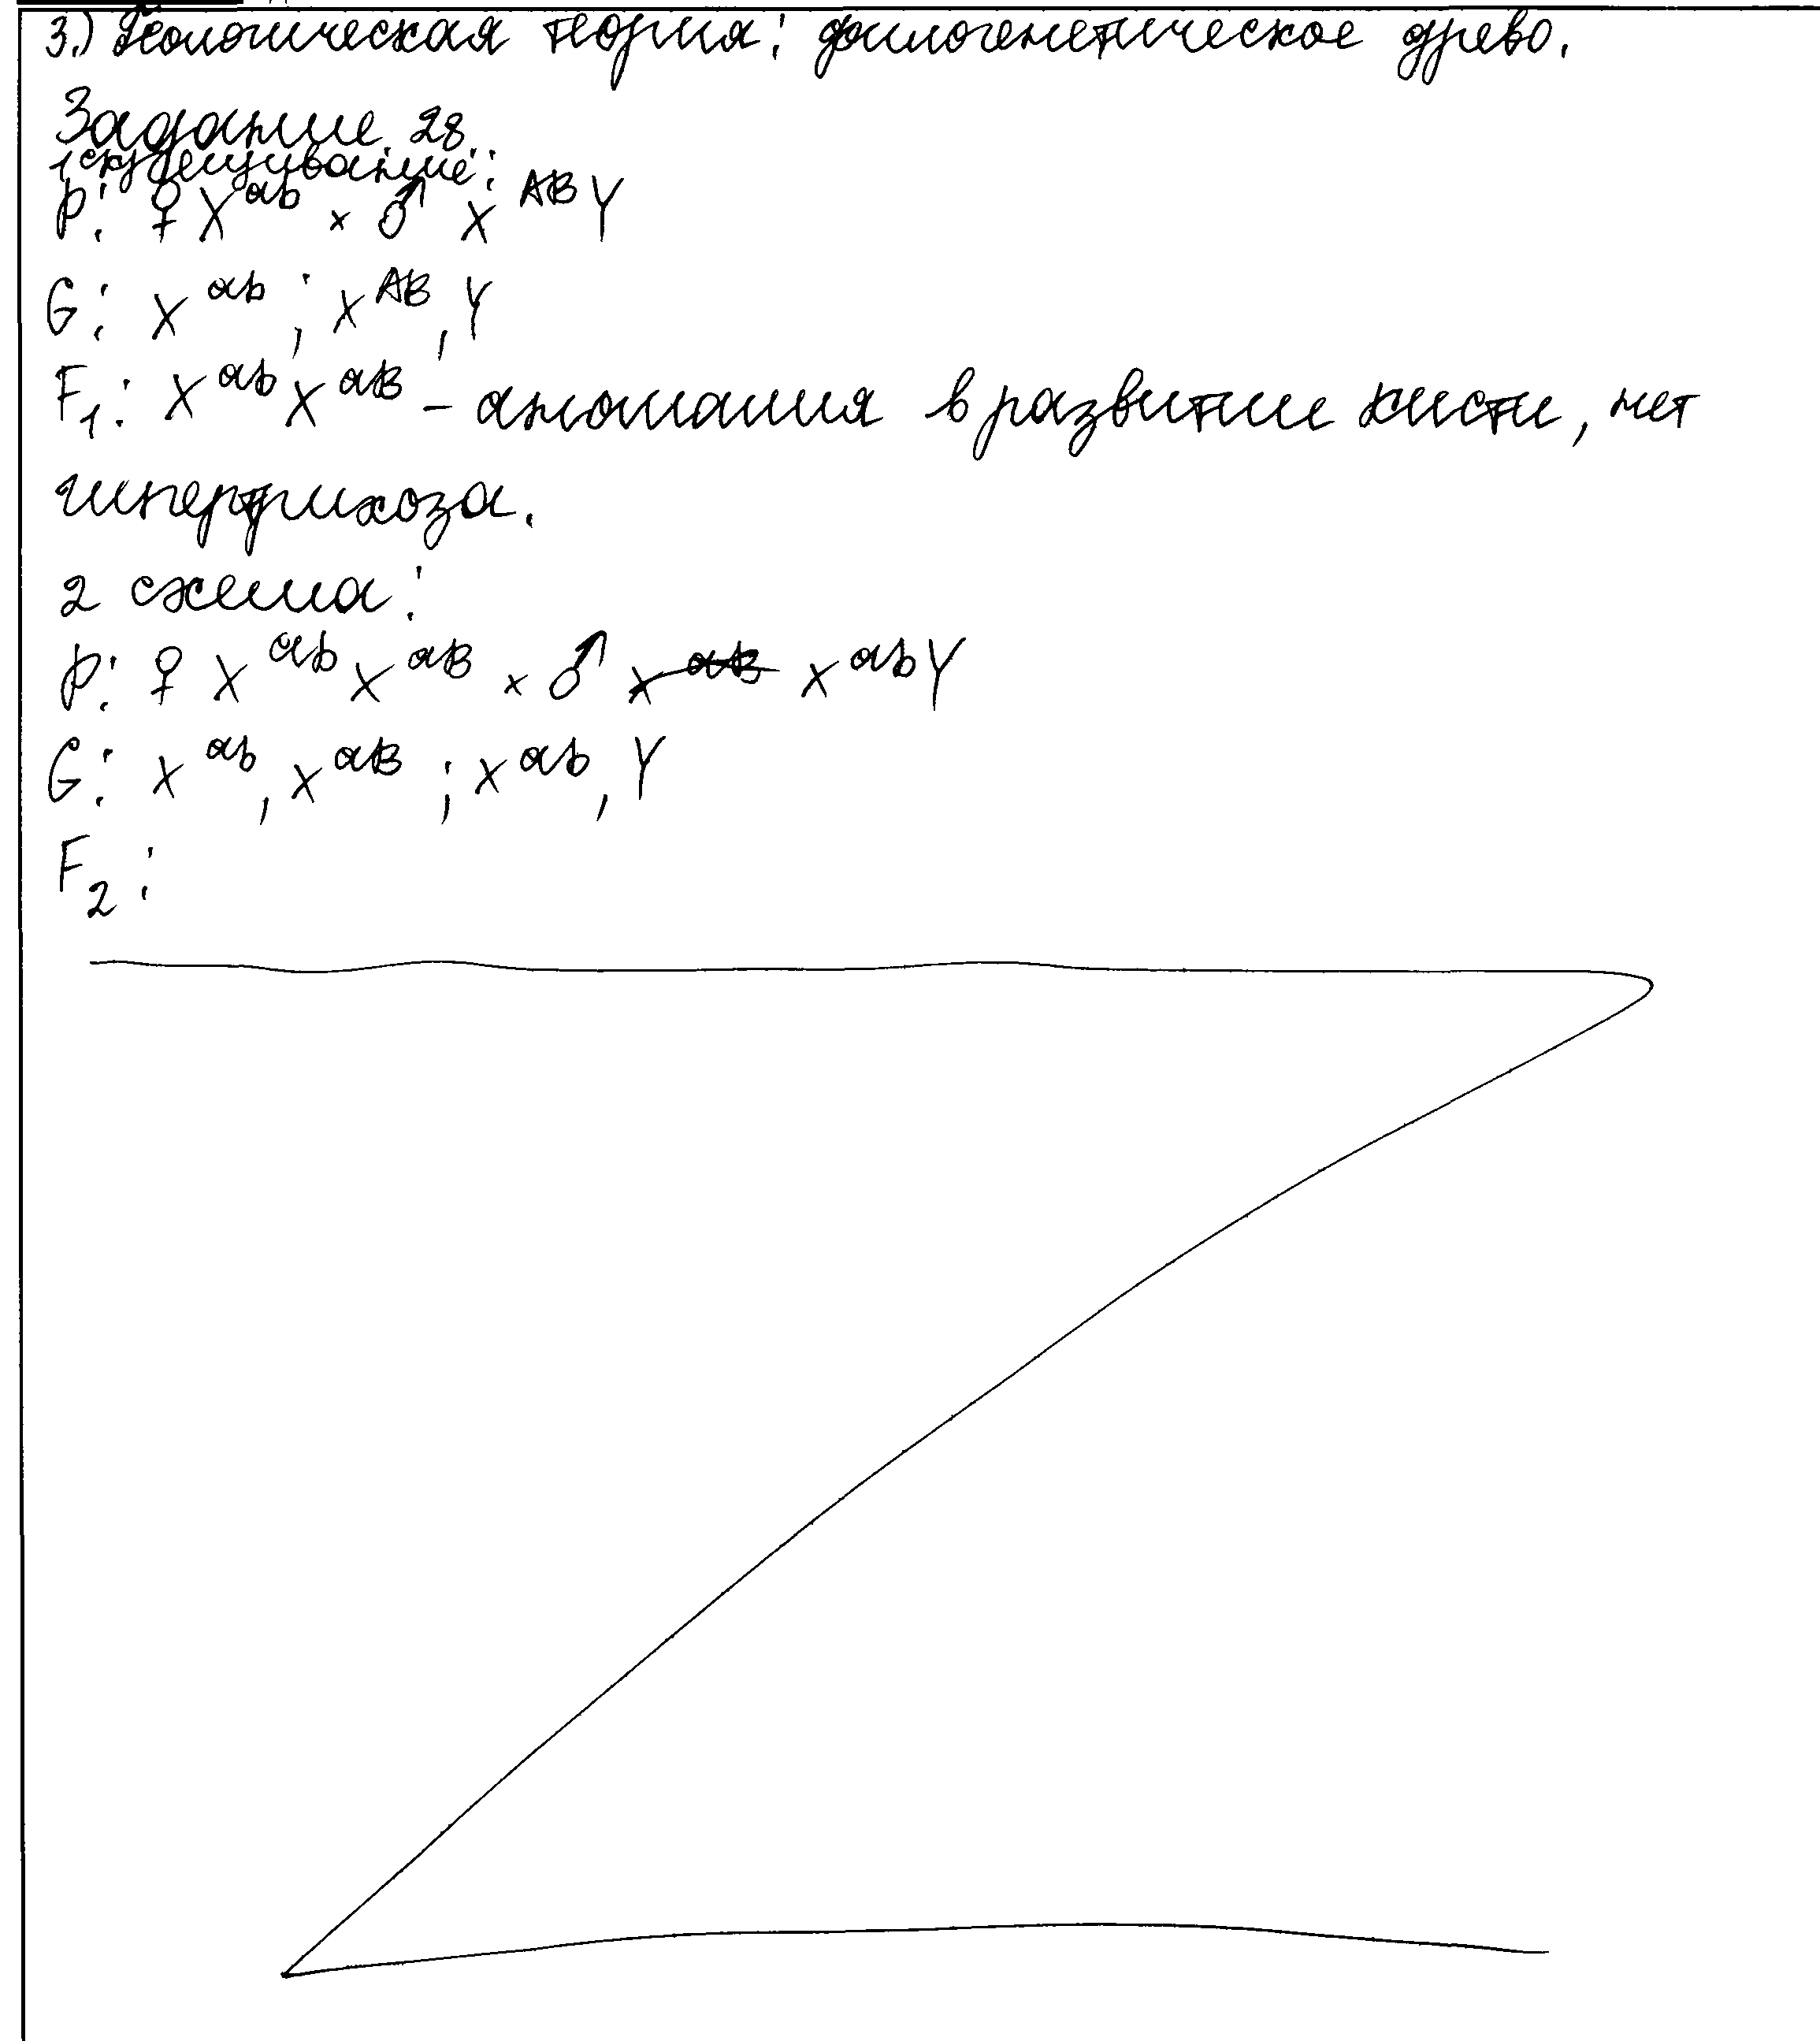 3.) Геологическая теория: филогенетическое древо.
Задание 28.
1 скрещивание:
P: ♀ X^ab × ♂ X^AB Y
G: X^ab ; X^AB, Y
F1: X^ab X^aB – аномалия в развитие кисти, нет
гипертрихоза.
2 схема:
P: ♀ X^ab X^aB × ♂ X^ab Y
G: X^ab, X^aB ; X^ab, Y
F2: